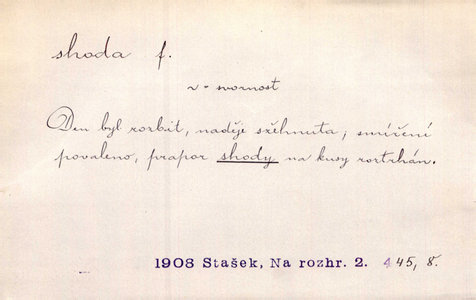 shoda f.
v - svornost
Den byl rozbit, naděje sžehnuta, smíření
povaleno, prapor shody na kusy roztrhán.
1908 Stašek, Na rozhr. 2. 445, 8.